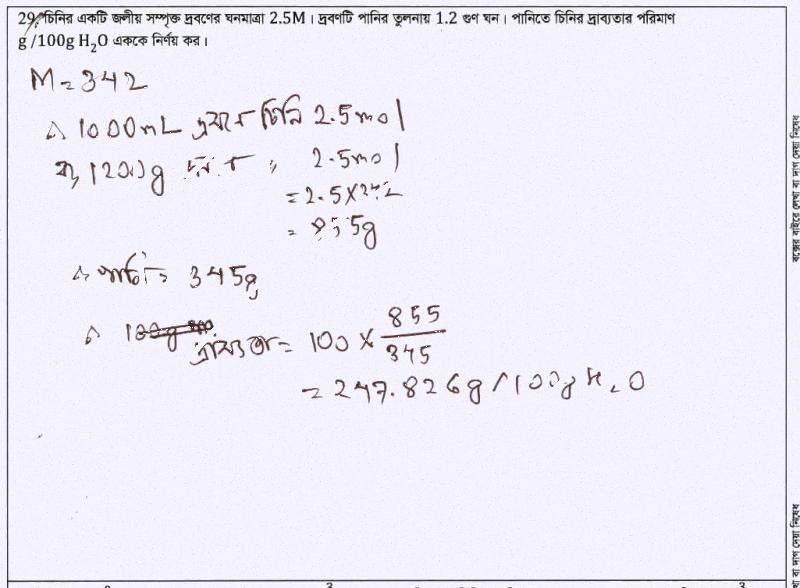 29. চিনির একটি জলীয় সম্পৃক্ত দ্রবণের ঘনমাত্রা 2.5M। দ্রবণটি পানির তুলনায় 1.2 গুণ ঘন। পানিতে চিনির দ্রাব্যতার পরিমাণ
g /100g H₂O এককে নির্ণয় কর।
M = 342
∴ 1000mL দ্রবণে চিনি 2.5mol
বা, 1200g " 2.5mol
= 2.5×342
= 855g
∴ পানি = 345g
∴ দ্রাব্যতা = 100 × 855/345
= 247.826g/100g H₂O
বক্সের বাইরে লেখা বা দাগ দেয়া নিষেধ
বা দাগ দেয়া নিষেধ